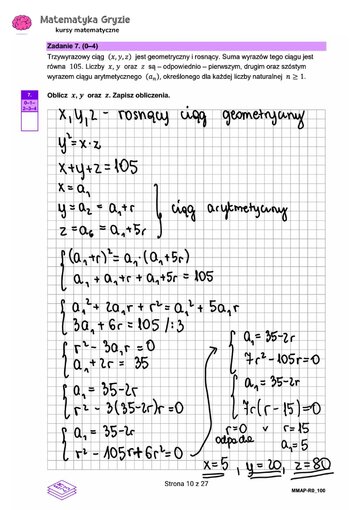 Matematyka Gryzie
kursy matematyczne
Zadanie 7. (0–4)
Trzywyrazowy ciąg (x, y, z) jest geometryczny i rosnący. Suma wyrazów tego ciągu jest
równa 105. Liczby x, y oraz z są – odpowiednio – pierwszym, drugim oraz szóstym
wyrazem ciągu arytmetycznego (aₙ), określonego dla każdej liczby naturalnej n ≥ 1.
7.
0–1–
2–3–4
Oblicz x, y oraz z. Zapisz obliczenia.
x, y, z - rosnący ciąg geometryczny
y² = x·z
x+y+z = 105
x = a₁
y = a₂ = a₁+r
z = a₆ = a₁+5r
ciąg arytmetyczny
(a₁+r)² = a₁·(a₁+5r)
a₁ + a₁+r + a₁+5r = 105
a₁² + 2a₁r + r² = a₁² + 5a₁r
3a₁ + 6r = 105 /:3
r² - 3a₁r = 0
a₁ + 2r = 35
a₁ = 35-2r
r² - 3(35-2r)r = 0
a₁ = 35-2r
r² - 105r + 6r² = 0
a₁ = 35-2r
7r² - 105r = 0
a₁ = 35-2r
7r(r - 15) = 0
r=0 v r=15
odpada a₁ = 5
x=5, y=20, z=80
Strona 10 z 27
MMAP-R0_100